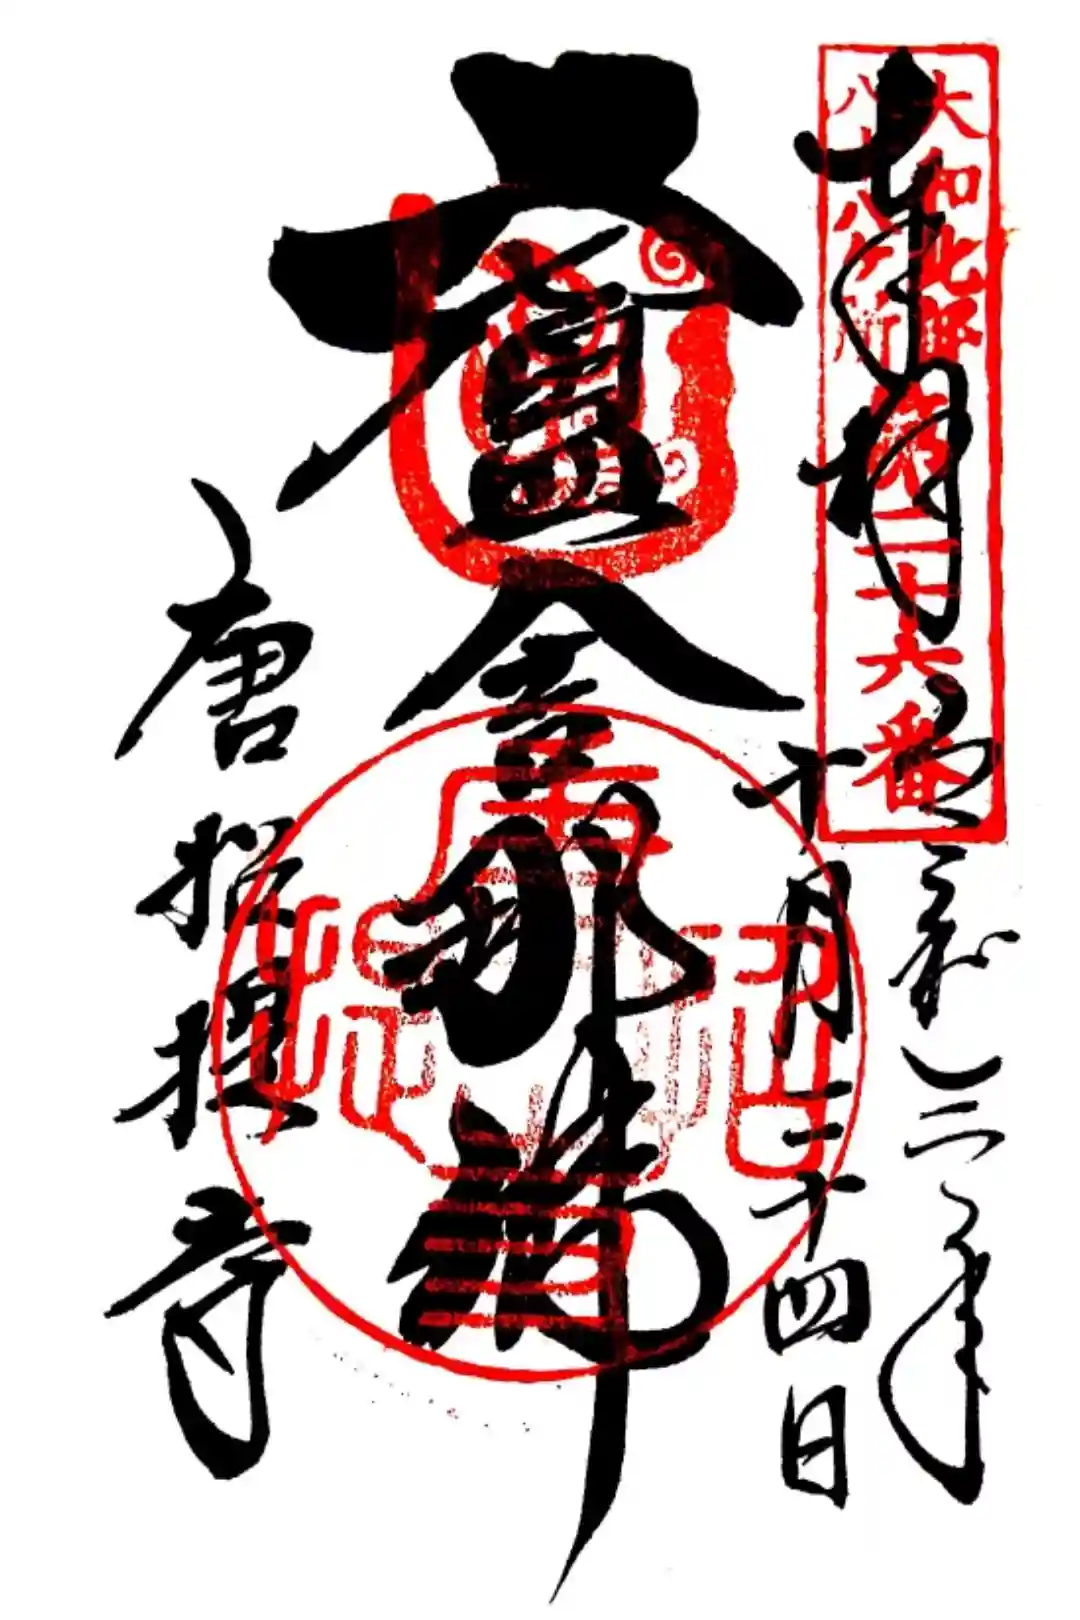 奉拝
令和三年
十月二十四日
大和北部
八十八ヶ所
第二十六番
盧舎那佛
唐招提寺